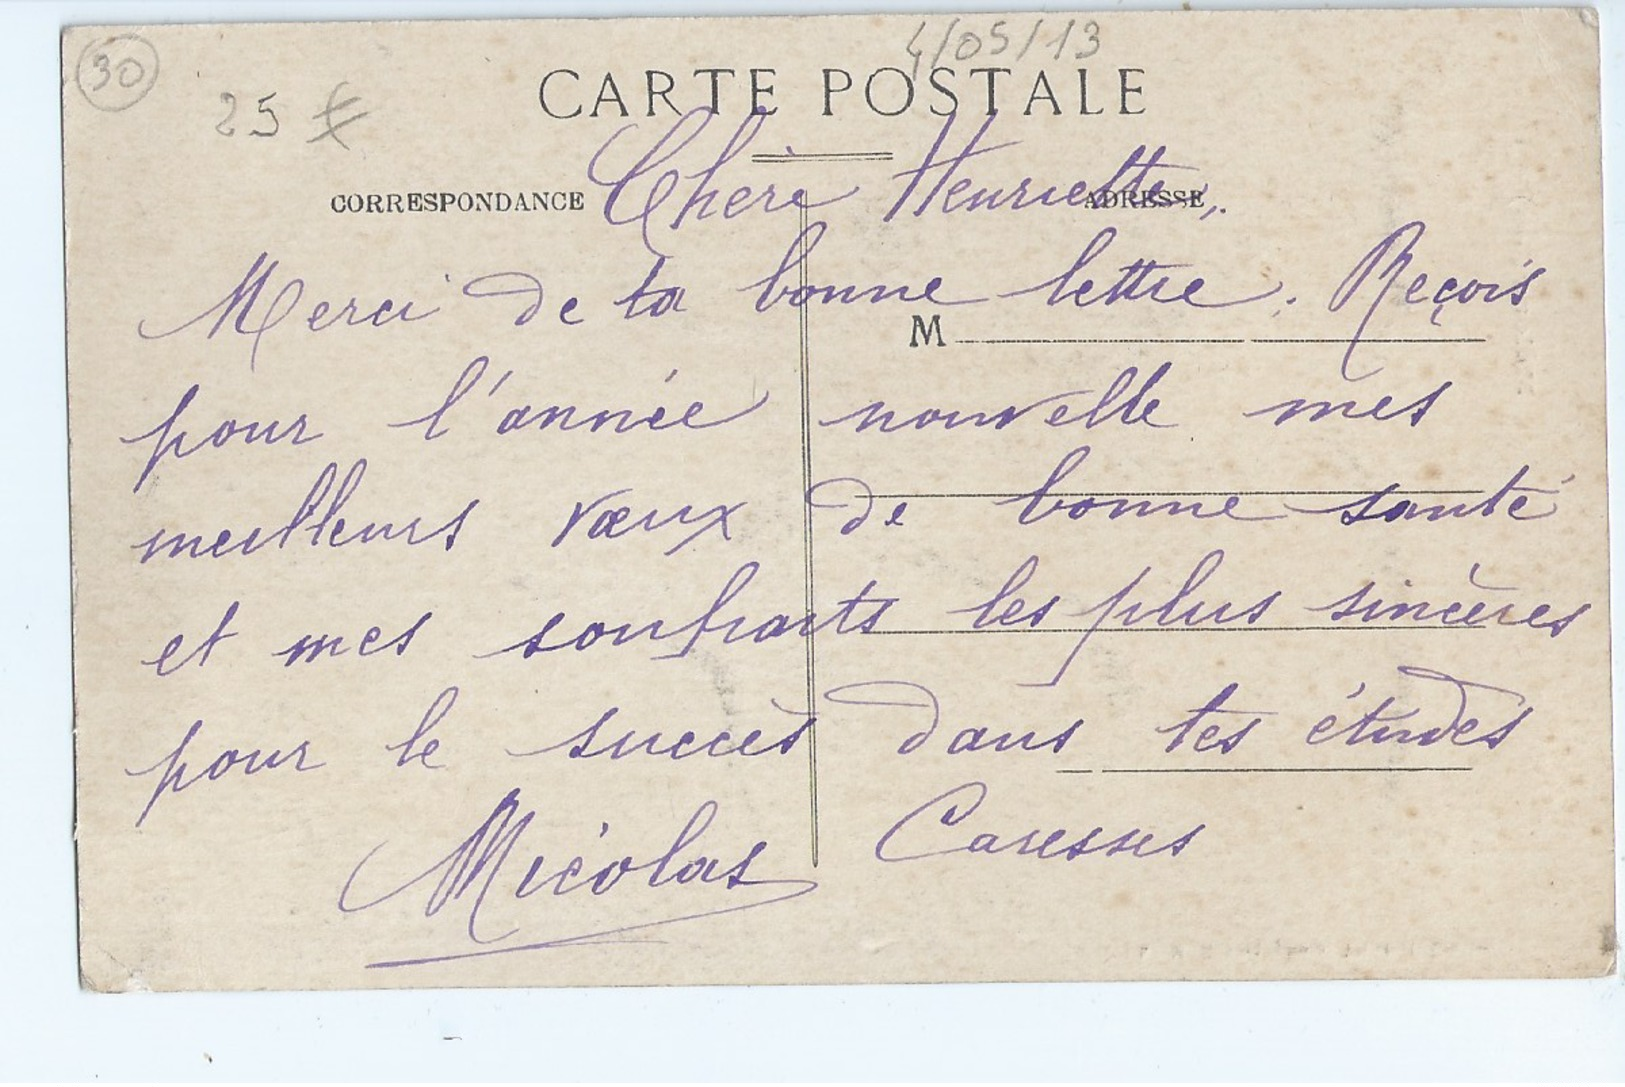 30
4/05/13
25 €
CARTE POSTALE
CORRESPONDANCE
ADRESSE
Chère Henriette,
Merci de ta bonne lettre. Reçois
M
pour l'année nouvelle mes
meilleurs vœux de bonne santé
et mes souhaits les plus sincères
pour le succès dans tes études
Caresses
Nicolas